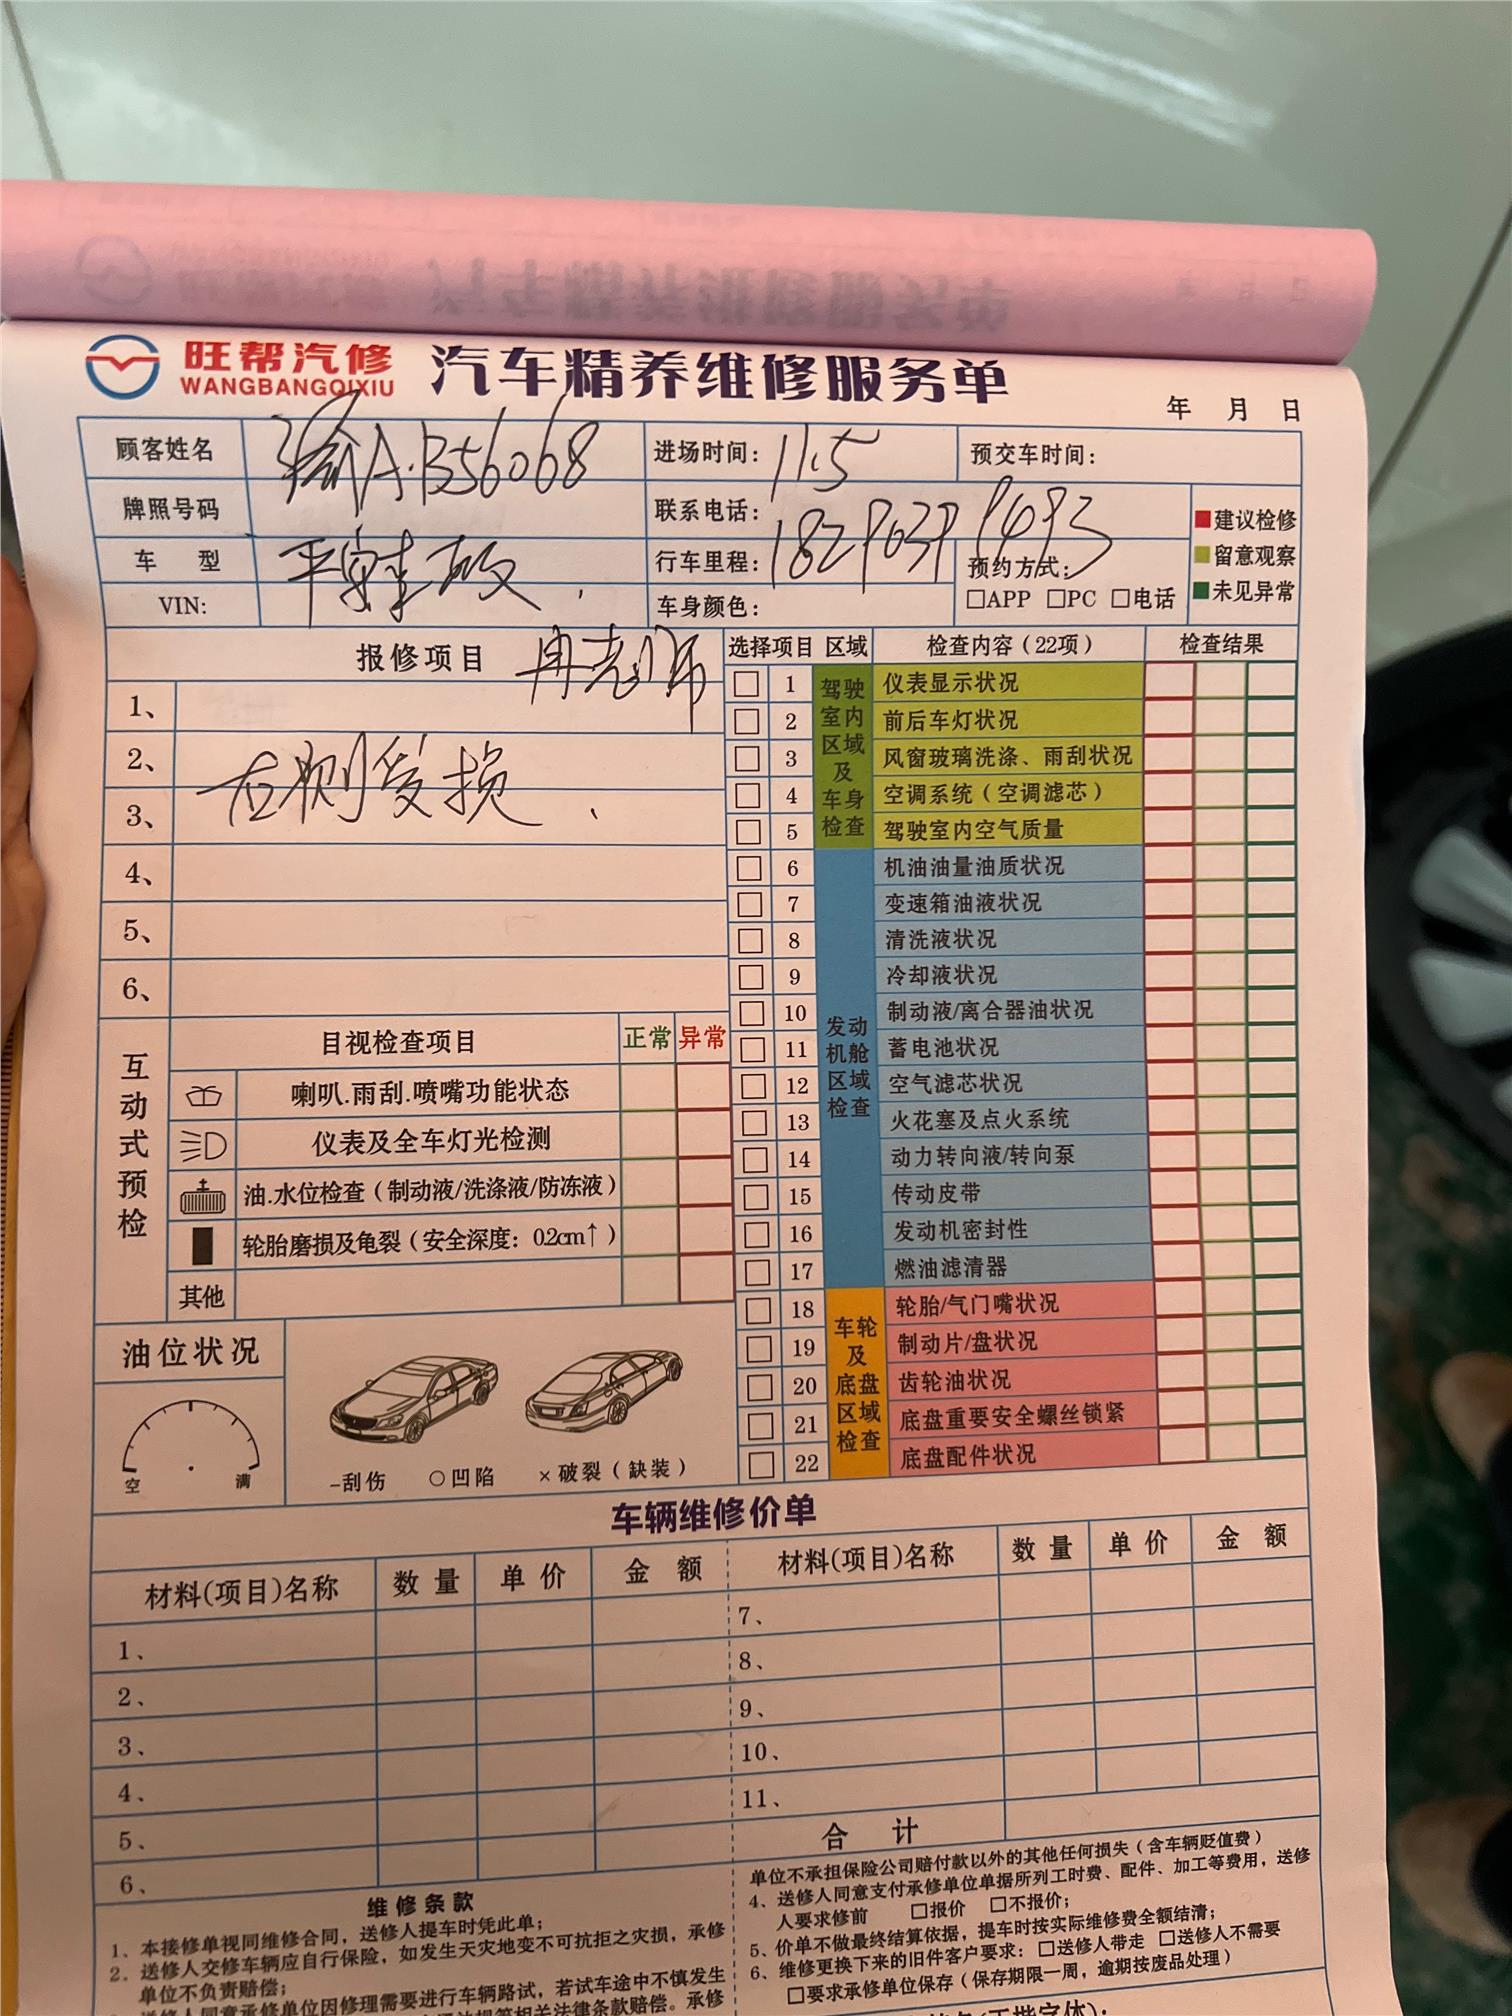 旺帮汽修
WANGBANGQIXIU
汽车精养维修服务单
年 月 日
顾客姓名 渝A·B56068 进场时间: 11.5 预交车时间:
牌照号码 联系电话: 1829039 9493
车 型 平安车 行车里程: 预约方式:
□APP □PC □电话
VIN: 车身颜色:
建议检修
留意观察
未见异常
报修项目 冉老师
1、
2、
右侧受损
3、
4、
5、
6、
选择项目 区域 检查内容(22项) 检查结果
驾驶室内区域及车身检查
1 仪表显示状况
2 前后车灯状况
3 风窗玻璃洗涤、雨刮状况
4 空调系统(空调滤芯)
5 驾驶室内空气质量
发动机舱区域检查
6 机油油量油质状况
7 变速箱油液状况
8 清洗液状况
9 冷却液状况
10 制动液/离合器油状况
11 蓄电池状况
12 空气滤芯状况
13 火花塞及点火系统
14 动力转向液/转向泵
15 传动皮带
16 发动机密封性
17 燃油滤清器
车轮及底盘区域检查
18 轮胎/气门嘴状况
19 制动片/盘状况
20 齿轮油状况
21 底盘重要安全螺丝锁紧
22 底盘配件状况
互动式预检
目视检查项目 正常 异常
喇叭.雨刮.喷嘴功能状态
仪表及全车灯光检测
油.水位检查(制动液/洗涤液/防冻液)
轮胎磨损及龟裂(安全深度: 0.2cm↑)
其他
油位状况
空 满
-刮伤 ○凹陷 ×破裂(缺装)
车辆维修价单
材料(项目)名称 数量 单价 金额 材料(项目)名称 数量 单价 金额
1、 7、
2、 8、
3、 9、
4、 10、
5、 11、
6、 合 计
维修条款
1、本接修单视同维修合同，送修人提车时凭此单;
2、送修人交修车辆应自行保险，如发生天灾地变不可抗拒之灾损，承修
单位不负责赔偿;
送修人同意承修单位因修理需要进行车辆路试，若试车途中不慎发生
相关法律条款赔偿。承修
单位不承担保险公司赔付款以外的其他任何损失(含车辆贬值费)
4、送修人同意支付承修单位单据所列工时费、配件、加工等费用，送修
人要求修前 □报价 □不报价;
5、价单不做最终结算依据，提车时按实际维修费全额结清;
6、维修更换下来的旧件客户要求: □送修人带走 □送修人不需要
□要求承修单位保存(保存期限一周，逾期按废品处理)